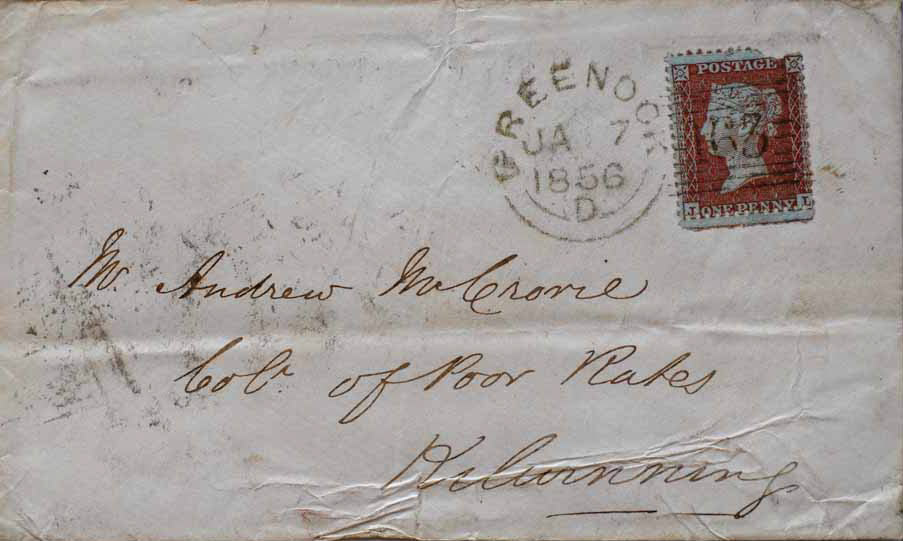 GREENOCK
JA 7
1856
D
POSTAGE
163
J ONE PENNY L
Mr. Andrew McCrorie
Colr. of Poor Rates
Kilwinning